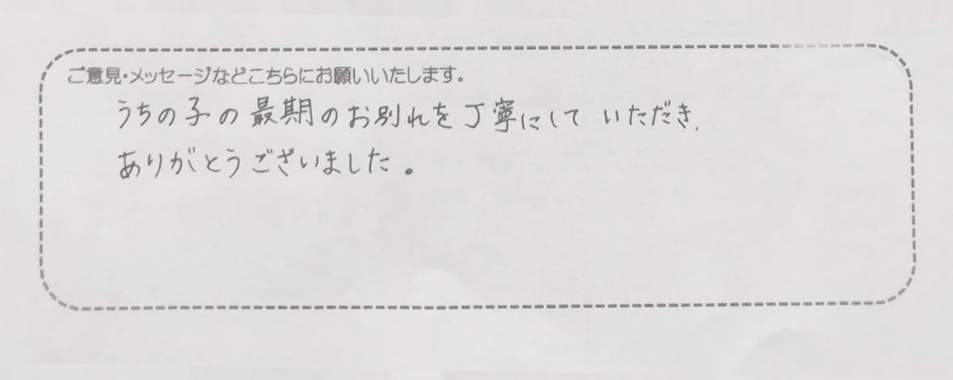 ご意見・メッセージなどこちらにお願いいたします。
うちの子の最期のお別れを丁寧にしていただき、
ありがとうございました。